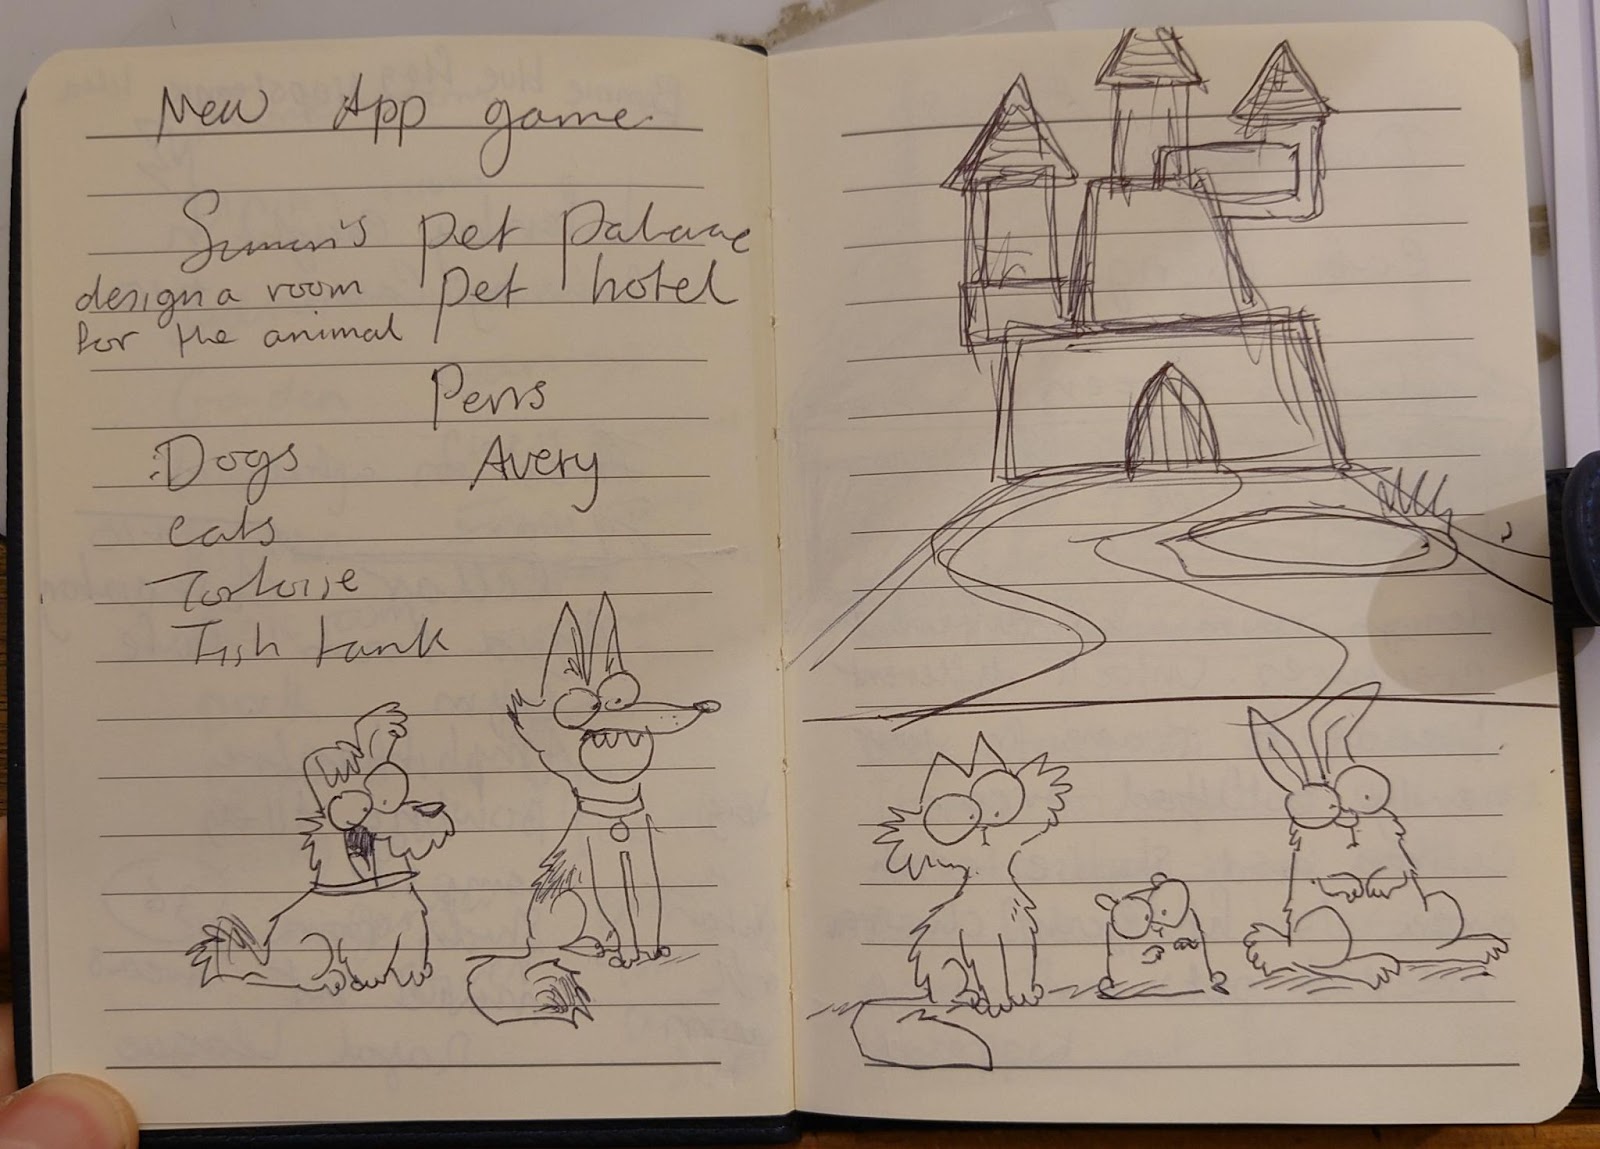 New App game
Simon's pet palace
design a room pet hotel
for the animal
Pens
Dogs Avery
cats
Tortoise
Fish tank